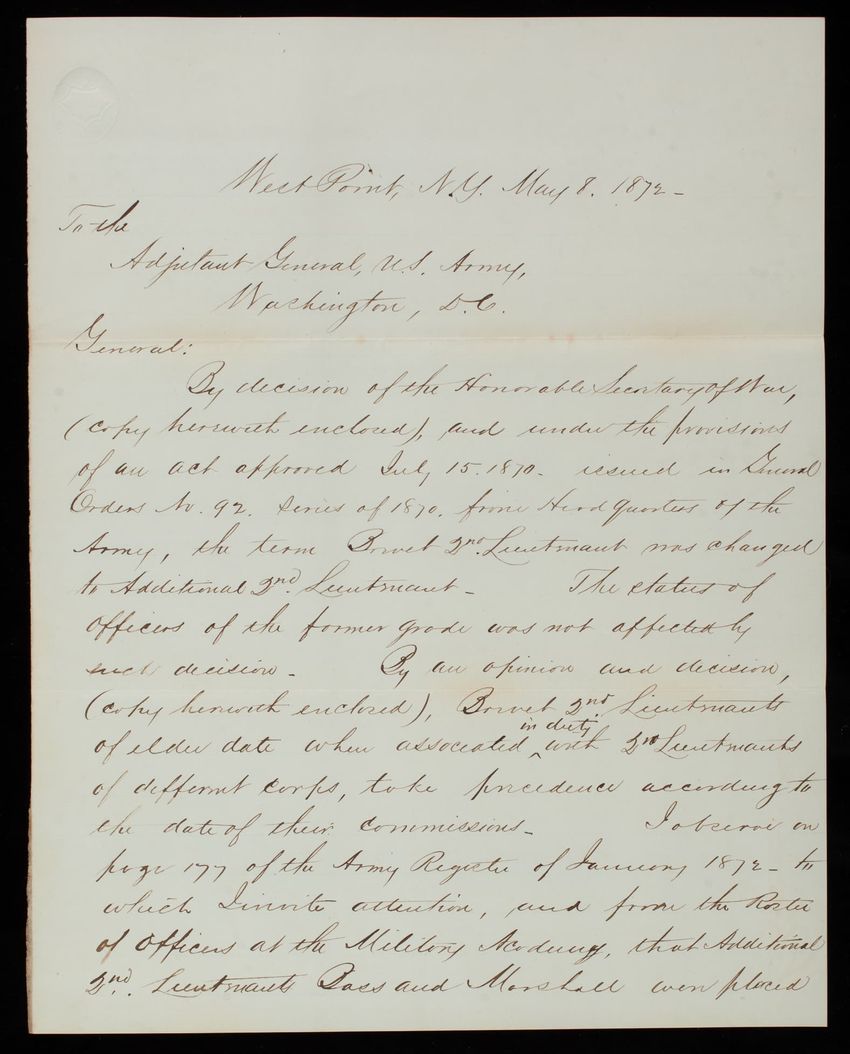 West Point, N.Y. May 8. 1872-
To the
Adjutant General, U.S. Army,
Washington, D.C.
General:
By decision of the Honorable Secretary of War,
(copy herewith enclosed), and under the provisions
of an act approved July 15. 1870. issued in General
Orders No. 92. Series of 1870. from Head Quarters of the
Army, the term Brevet 2nd. Lieutenant was changed
to Additional 2nd. Lieutenant- The status of
officers of the former grade was not affected by
such decision- By an opinion and decision,
(copy herewith enclosed), Brevet 2nd. Lieutenants
in duty
of elder date when associated ^ with 2nd Lieutenants
of different corps, take precedence according to
the date of their commissions- I observe on
page 177 of the Army Register of January 1872- to
which I invite attention, and from the Roster
of Officers at the Military Academy, that Additional
2nd. Lieutenants Bass and Marshall were placed